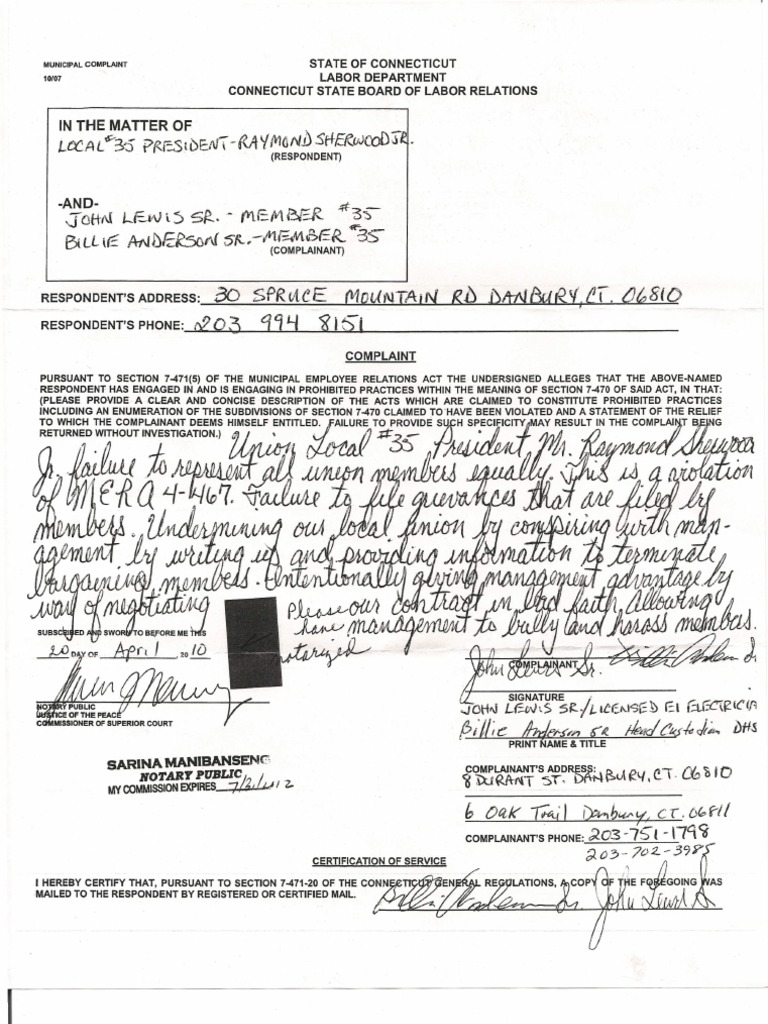 MUNICIPAL COMPLAINT
10/07
STATE OF CONNECTICUT
LABOR DEPARTMENT
CONNECTICUT STATE BOARD OF LABOR RELATIONS
IN THE MATTER OF
LOCAL #35 PRESIDENT-RAYMOND SHERWOOD JR.
(RESPONDENT)
-AND-
JOHN LEWIS SR. - MEMBER #35
BILLIE ANDERSON SR. - MEMBER #35
(COMPLAINANT)
RESPONDENT'S ADDRESS: 30 SPRUCE MOUNTAIN RD DANBURY, CT. 06810
RESPONDENT'S PHONE: 203 994 8151
COMPLAINT
PURSUANT TO SECTION 7-471(5) OF THE MUNICIPAL EMPLOYEE RELATIONS ACT THE UNDERSIGNED ALLEGES THAT THE ABOVE-NAMED
RESPONDENT HAS ENGAGED IN AND IS ENGAGING IN PROHIBITED PRACTICES WITHIN THE MEANING OF SECTION 7-470 OF SAID ACT, IN THAT:
(PLEASE PROVIDE A CLEAR AND CONCISE DESCRIPTION OF THE ACTS WHICH ARE CLAIMED TO CONSTITUTE PROHIBITED PRACTICES
INCLUDING AN ENUMERATION OF THE SUBDIVISIONS OF SECTION 7-470 CLAIMED TO HAVE BEEN VIOLATED AND A STATEMENT OF THE RELIEF
TO WHICH THE COMPLAINANT DEEMS HIMSELF ENTITLED. FAILURE TO PROVIDE SUCH SPECIFICITY MAY RESULT IN THE COMPLAINT BEING
RETURNED WITHOUT INVESTIGATION.)
Union Local #35 President Mr. Raymond Sherwood
Jr. failure to represent all union members equally. This is a violation
of MERA 4-1467. Failure to file grievances that are filed by
members. Undermining our local union by conspiring with man-
agement by writing up and providing information to terminate
bargaining members. Intentionally giving management advantage by
way of negotiating our contract in bad faith allowing
management to bully and harass members.
Please
have
notarized
SUBSCRIBED AND SWORN TO BEFORE ME THIS
20 DAY OF April 2010
NOTARY PUBLIC
JUSTICE OF THE PEACE
COMMISSIONER OF SUPERIOR COURT
SARINA MANIBANSENG
NOTARY PUBLIC
MY COMMISSION EXPIRES 7/31/2012
John Lewis Sr. Billie Anderson Sr
COMPLAINANT
SIGNATURE
JOHN LEWIS SR./LICENSED E1 ELECTRICIA
Billie Anderson SR Head Custodian DHS
PRINT NAME & TITLE
COMPLAINANT'S ADDRESS:
8 DURANT ST. DANBURY, CT. 06810
6 Oak Trail Danbury, CT. 06811
COMPLAINANT'S PHONE: 203-751-1798
203-702-3985
CERTIFICATION OF SERVICE
I HEREBY CERTIFY THAT, PURSUANT TO SECTION 7-471-20 OF THE CONNECTICUT GENERAL REGULATIONS, A COPY OF THE FOREGOING WAS
MAILED TO THE RESPONDENT BY REGISTERED OR CERTIFIED MAIL.
Billie Anderson Sr. John Lewis Sr